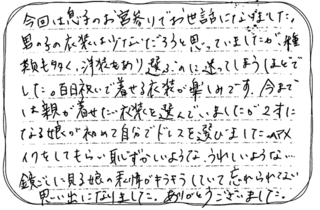 今回は息子のお宮参りでお世話になりました。
男の子の衣装は少ないだろうと思っていましたが、種
類も多く、洋装もあり選ぶのに迷ってしまうほどで
した。百日祝いで着せる衣装が楽しみです。今まで
は親が着せたい衣装を選んでいましたが2才に
なる娘が初めて自分でドレスを選びました。ヘアメ
イクをしてもらい恥ずかしいような、うれしいような…
鏡ごしに見る娘の表情がキラキラしていて忘れられない
思い出になりました。ありがとうございました。